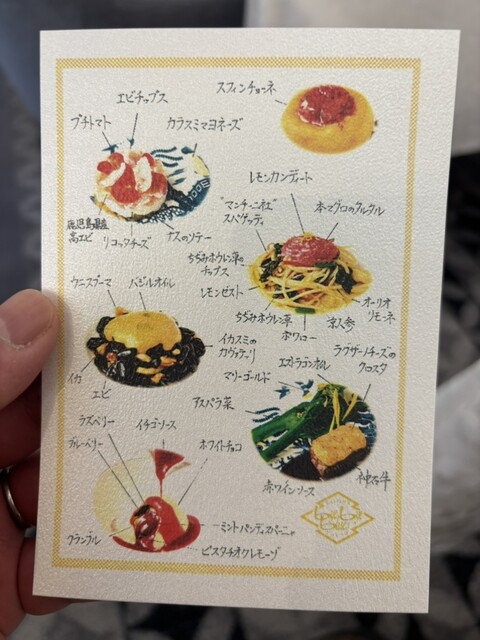 スフィンチョーネ
エビチップス
プチトマト
カラスミマヨネーズ
鹿児島県産
高エビ
リコッタチーズ
ナスのソテー
レモンカンディート
"マンチーニ社"
スパゲッティ
本マグロのタルタル
ちぢみホウレン草の
チップス
レモンゼスト
ちぢみホウレン草
ポワロー
京人参
オーリオ
リモーネ
ウニスプーマ
バジルオイル
イカスミの
カヴァテッリ
イカ
エビ
ラグザーノチーズの
クロスタ
エストラゴンオイル
マリーゴールド
アスパラ菜
赤ワインソース
神石牛
ラズベリー
ブルーベリー
イチゴソース
ホワイトチョコ
クランブル
ミントパンディスパーニャ
ピスタチオクレモーゾ